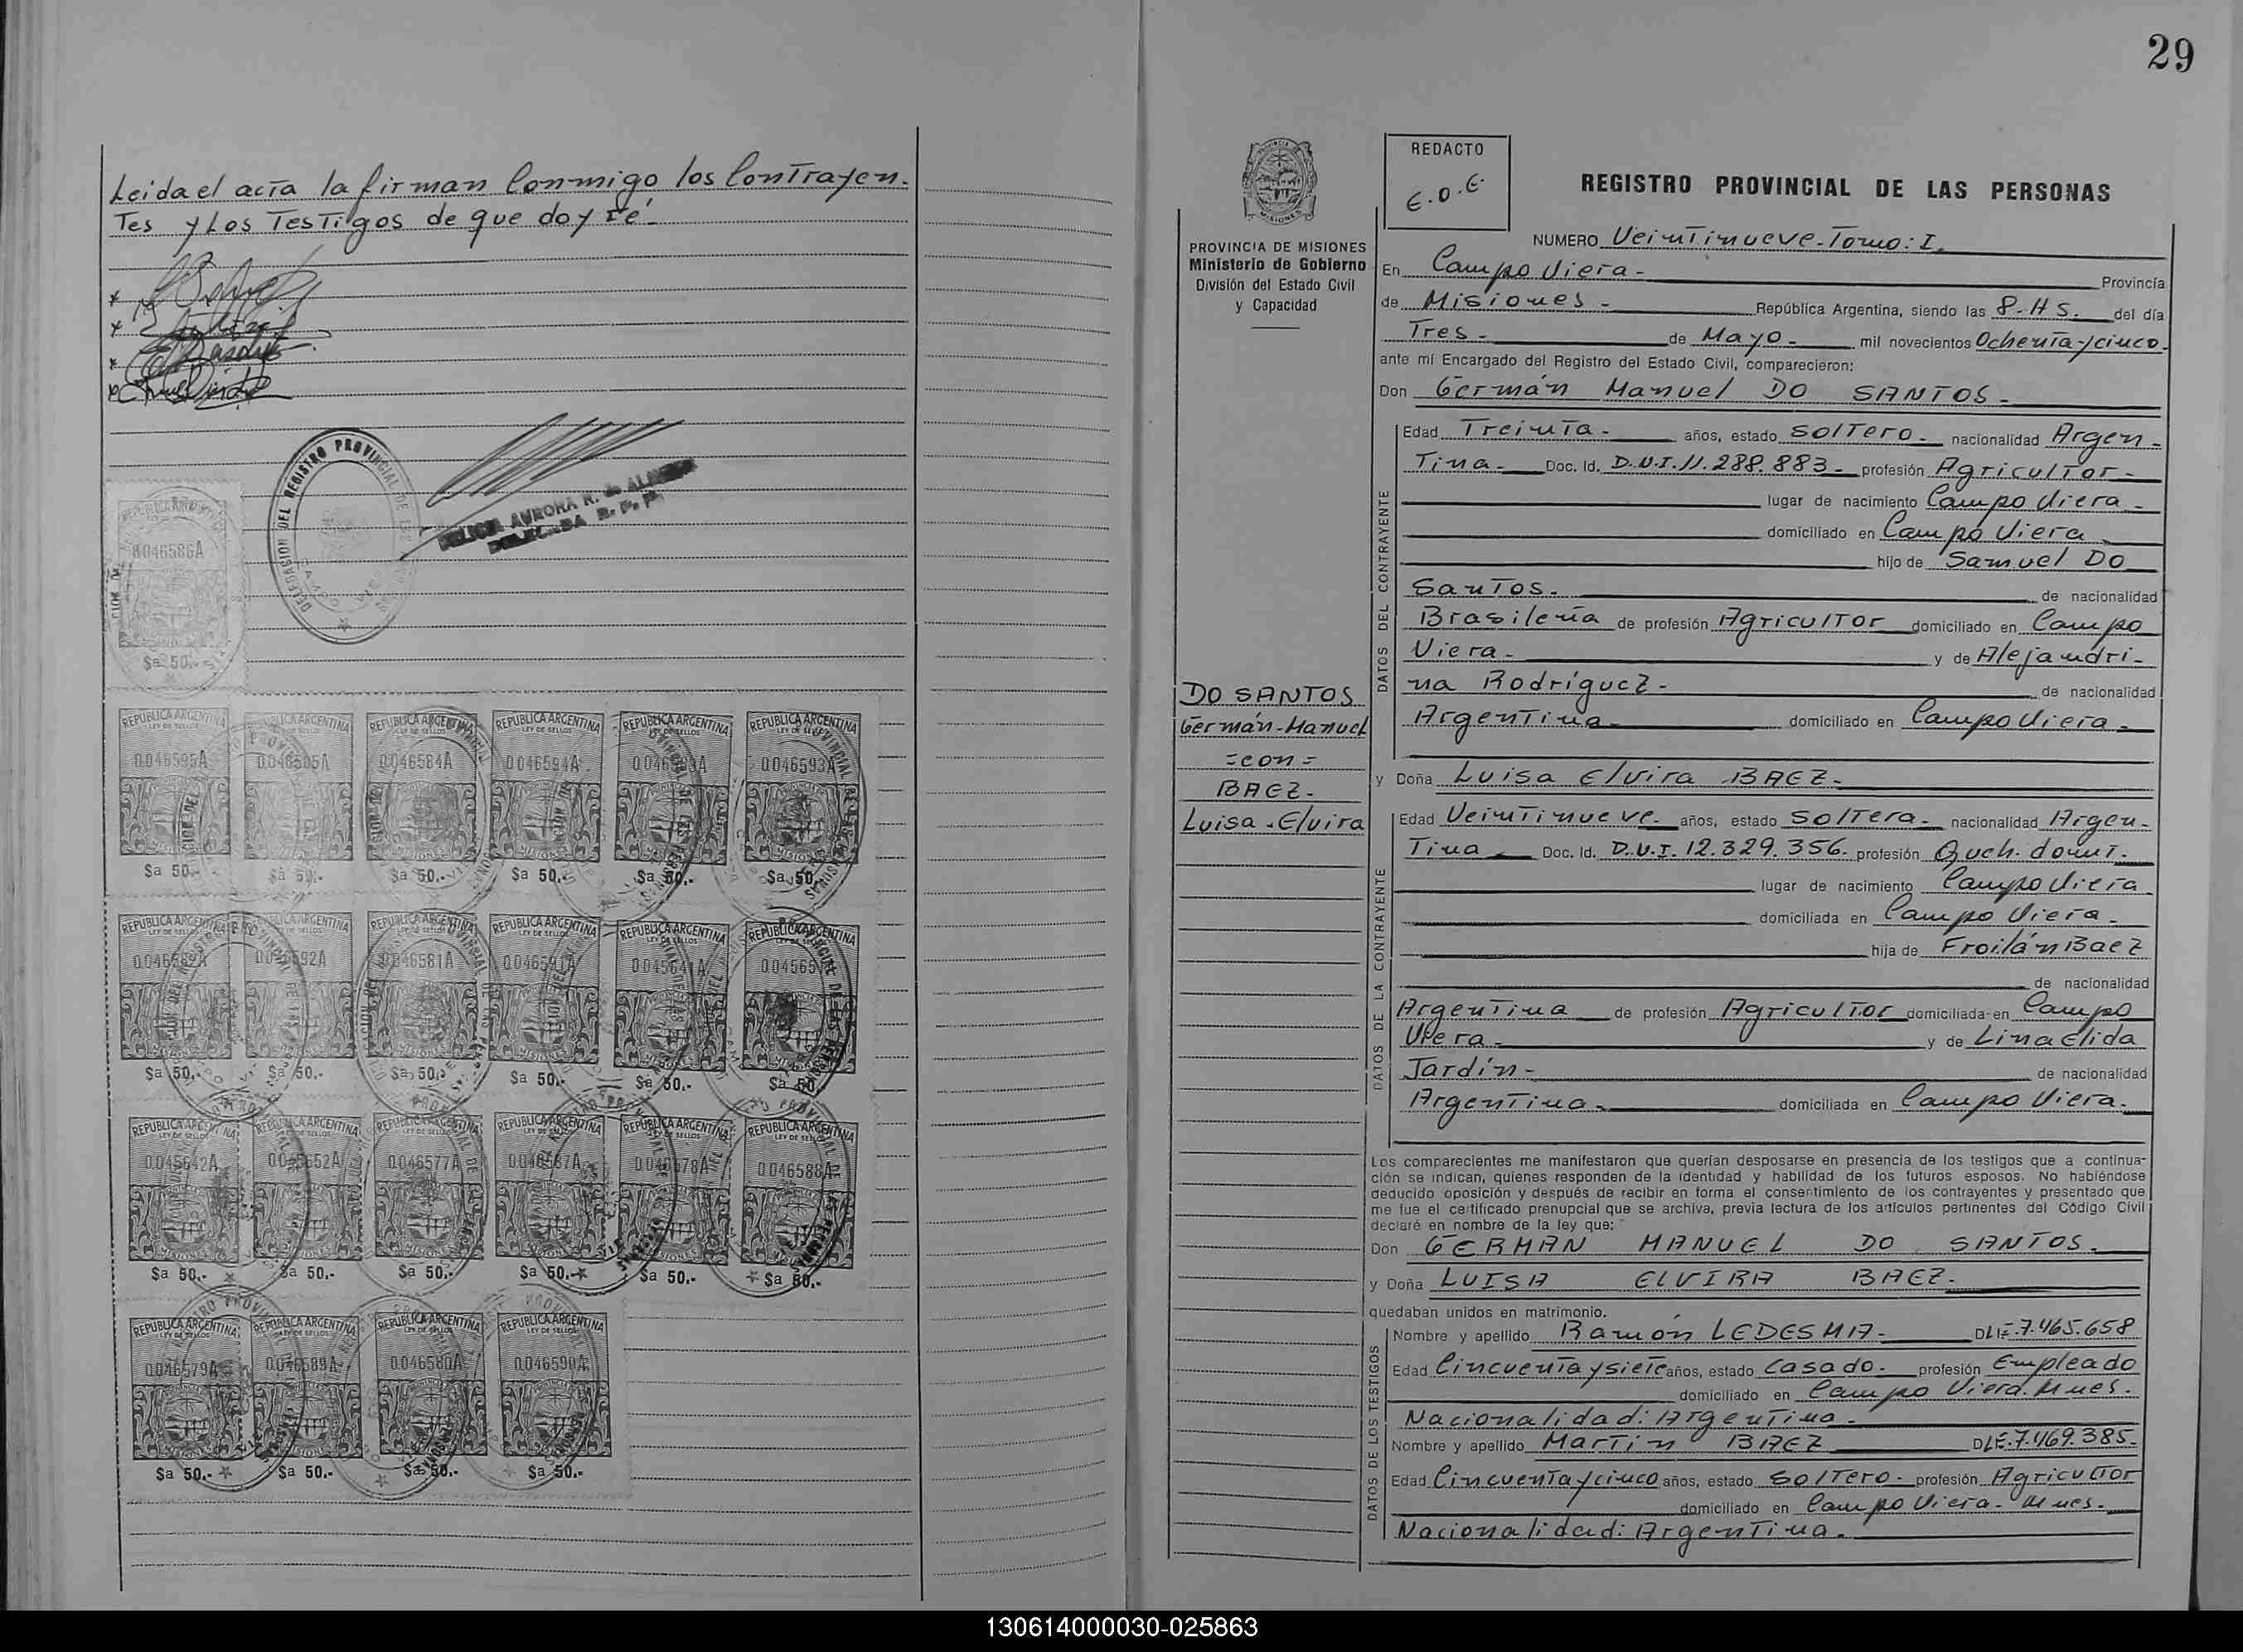 Leida el acta la firman Conmigo los Contrayen-
tes y Los Testigos de que doy Fé.-
DELEGACION DEL REGISTRO PROVINCIAL DE LAS
AURORA R. de
R. P. P.
0046586A
$a 50.-
REPUBLICA ARGENTINA REPUBLICA ARGENTINA REPUBLICA ARGENTINA REPUBLICA ARGENTINA REPUBLICA ARGENTINA REPUBLICA ARGENTINA
LEY DE SELLOS LEY DE SELLOS LEY DE SELLOS LEY DE SELLOS LEY DE SELLOS
0046595A 0046585A 0046584A 0046594A 0046583A 0046593A
MISIONES MISIONES MISIONES MISIONES MISIONES MISIONES
$a 50.- $a 50.- $a 50.- $a 50.- $a 50.- $a 50.-
REPUBLICA ARGENTINA REPUBLICA ARGENTINA REPUBLICA ARGENTINA REPUBLICA ARGENTINA REPUBLICA ARGENTINA REPUBLICA ARGENTINA
0046582A 0046592A 0046581A 0046591A 0045641A 004565
$a 50.- $a 50.- $a 50.- $a 50.- $a 50.- $a 50.-
REPUBLICA ARGENTINA REPUBLICA ARGENTINA REPUBLICA ARGENTINA REPUBLICA ARGENTINA REPUBLICA ARGENTINA REPUBLICA ARGENTINA
0045642A 0045652A 0046577A 0046587A 0046578A 0046588A
$a 50.- $a 50.- $a 50.- $a 50.- $a 50.- $a 50.-
REPUBLICA ARGENTINA REPUBLICA ARGENTINA REPUBLICA ARGENTINA REPUBLICA ARGENTINA
0046579A 0046589A 0046580A 0046590A
$a 50.- $a 50.- $a 50.- $a 50.-
29
PROVINCIA DE MISIONES
Ministerio de Gobierno
División del Estado Civil
y Capacidad
REDACTO
E.O.E.
REGISTRO PROVINCIAL DE LAS PERSONAS
NUMERO Veintinueve-Tomo: I.
En Campo Viera- Provincia
de Misiones- República Argentina, siendo las 8-HS. del día
Tres- de Mayo- mil novecientos Ochenta y cinco.
ante mí Encargado del Registro del Estado Civil, comparecieron:
Don Germán Manuel DO SANTOS-
DATOS DEL CONTRAYENTE
Edad Treinta- años, estado Soltero- nacionalidad Argen-
tina- Doc. Id. D.N.I.11.288.883- profesión Agricultor-
lugar de nacimiento Campo Viera-
domiciliado en Campo Viera
hijo de Samuel Do
Santos. de nacionalidad
Brasileña de profesión Agricultor domiciliado en Campo
Viera- y de Alejandri-
na Rodríguez- de nacionalidad
Argentina- domiciliado en Campo Viera-
DO SANTOS
Germán-Manuel
=con=
BAEZ-
Luisa-Elvira
y Doña Luisa Elvira BAEZ-
DATOS DE LA CONTRAYENTE
Edad Veintinueve. años, estado Soltera- nacionalidad Argen-
Tina Doc. Id. D.N.I. 12.329.356- profesión Queh. domt.
lugar de nacimiento Campo Viera
domiciliada en Campo Viera-
hija de Froilán Baez
de nacionalidad
Argentina de profesión Agricultor domiciliada en Campo
Viera- y de Lina Elida
Jardín- de nacionalidad
Argentina- domiciliada en Campo Viera.
Los comparecientes me manifestaron que querían desposarse en presencia de los testigos que a continua-
ción se indican, quienes responden de la identidad y habilidad de los futuros esposos. No habiéndose
deducido oposición y después de recibir en forma el consentimiento de los contrayentes y presentado que
me fue el certificado prenupcial que se archiva, previa lectura de los artículos pertinentes del Código Civil
declaré en nombre de la ley que:
Don GERMAN MANUEL DO SANTOS-
y Doña LUISA ELVIRA BAEZ-
quedaban unidos en matrimonio.
DATOS DE LOS TESTIGOS
Nombre y apellido Ramón LEDESMA- DLE.7.465.658
Edad Cincuenta y siete años, estado Casado- profesión Empleado
domiciliado en Campo Viera. Mnes.
Nacionalidad: Argentina-
Nombre y apellido Martin BAEZ DLE.7.469.385-
Edad Cincuenta y cinco años, estado Soltero- profesión Agricultor
domiciliado en Campo Viera- Mnes.
Nacionalidad: Argentina-
130614000030-025863